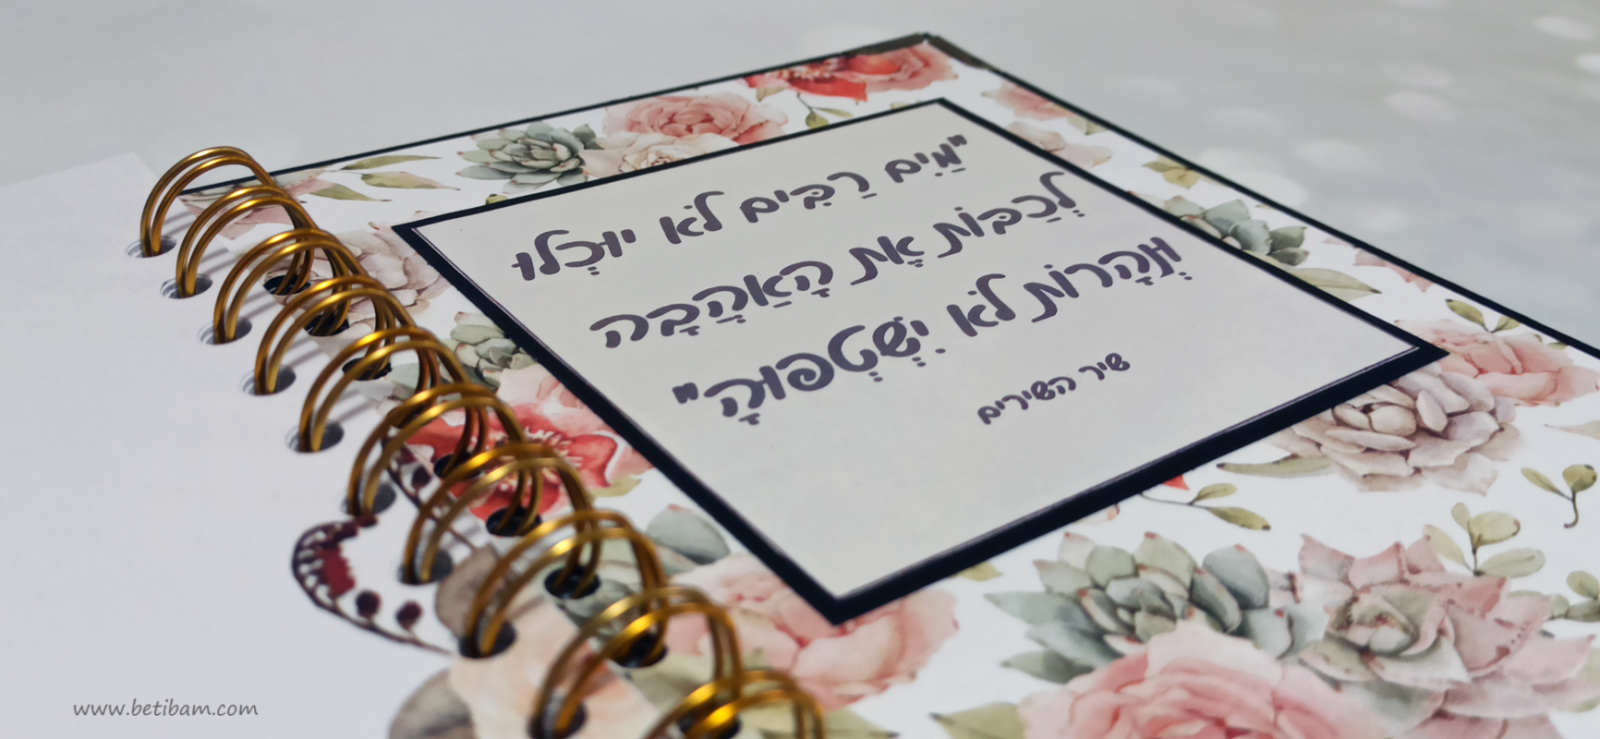 "מַיִם רַבִּים לֹא יוּכְלוּ
לְכַבּוֹת אֶת הָאַהֲבָה
וּנְהָרוֹת לֹא יִשְׁטְפוּהָ"
שיר השירים
www.betibam.com